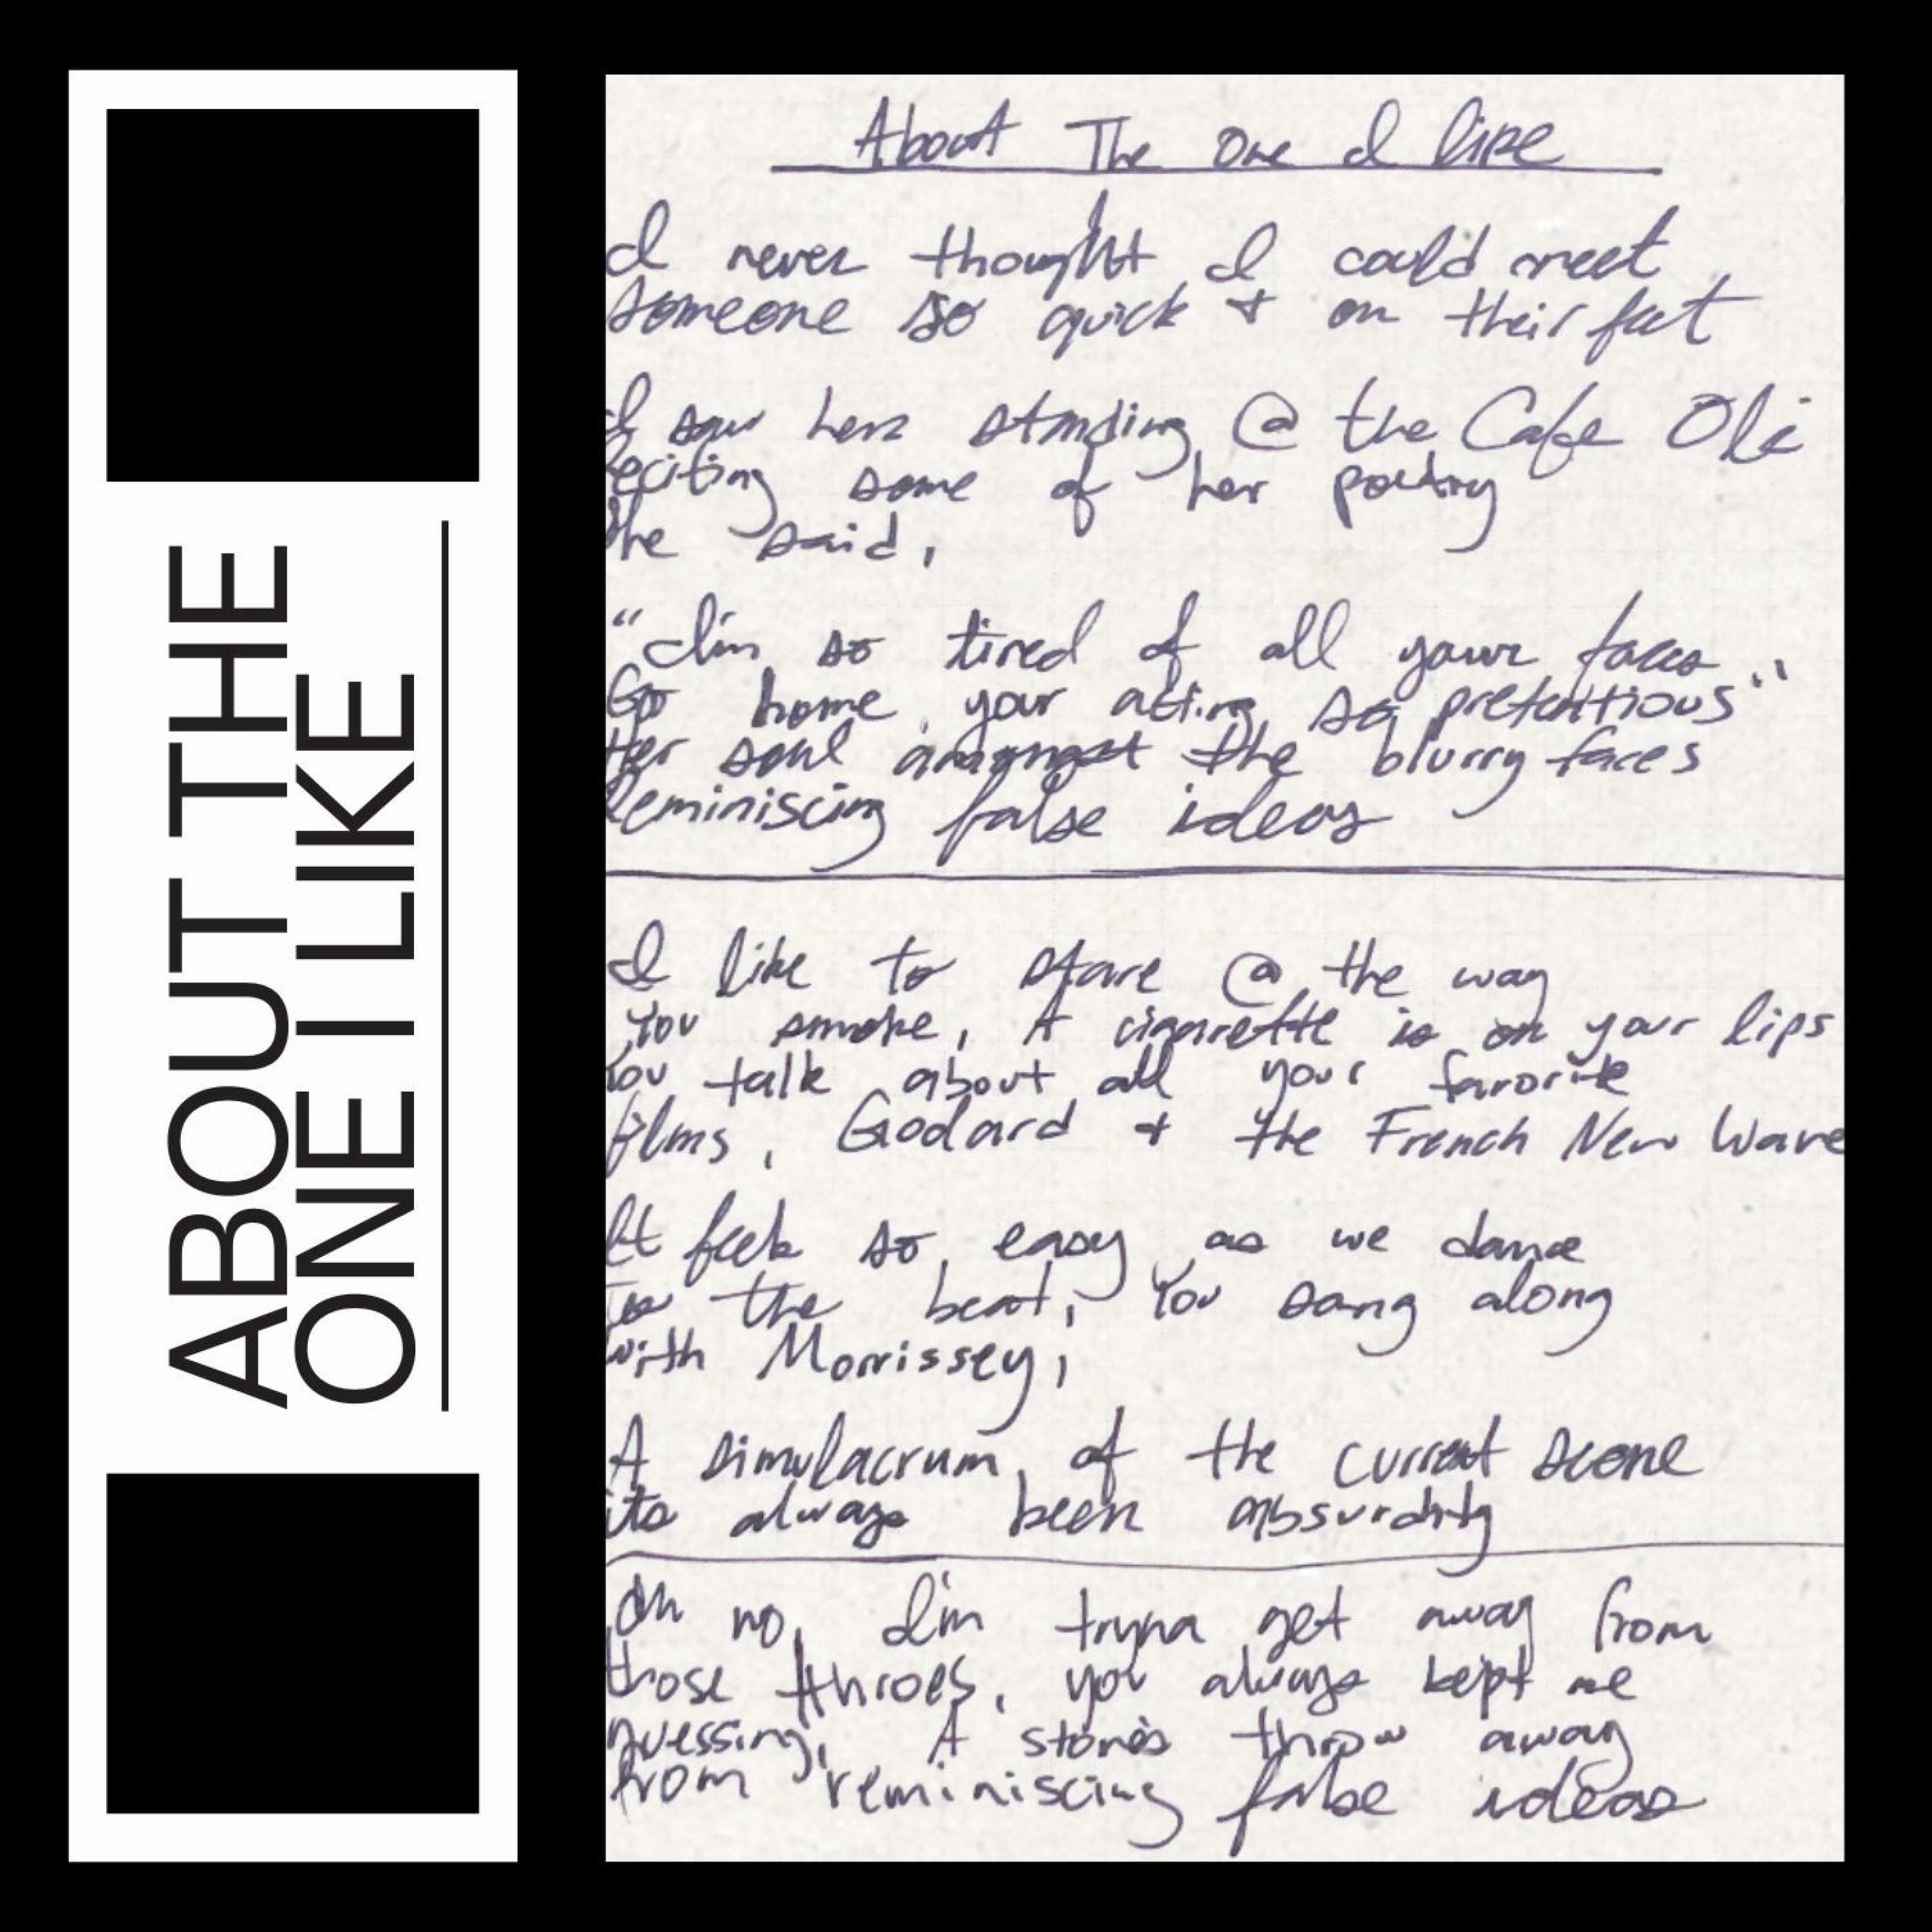 ABOUT THE
ONE I LIKE
About The One I like
I never thought I could meet
someone so quick + on their feet
I saw her standing @ the Cafe Olé
Reciting some of her poetry
She said,
"I'm so tired of all your faces
Go home your acting so pretentious"
Her soul amongst the blurry faces
Reminiscing false ideas
I like to stare @ the way
You smoke, A cigarette is on your lips
You talk about all your favorite
films, Godard + the French New Wave
It feels so easy as we dance
to the beat, You sang along
with Morrissey,
A simulacrum of the current scene
its always been absurdity
Oh no, I'm tryna get away from
those throes, you always kept me
guessing, A stone's throw away
from reminiscing false ideas